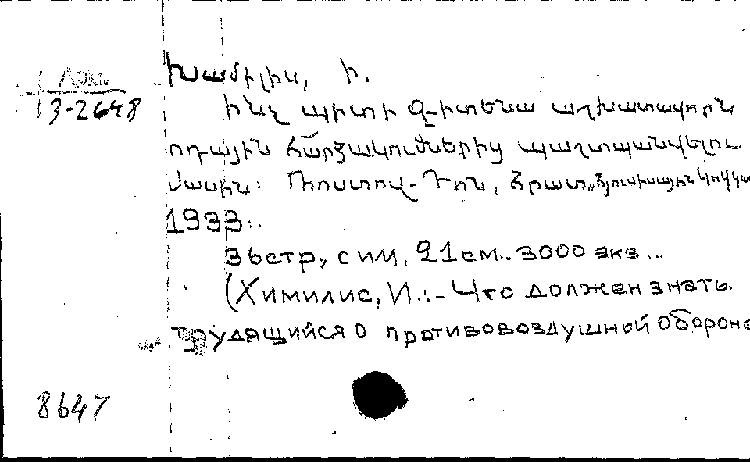 Խամիլիս, Ի.
13-2648
Ինչ պիտի գիտենա աշխատավորն
օդային հարձակումներից պաշտպանվելու
մասին: Ռոստով-Դոն,
1933.
36стр, с им, 21см.. 3000 экз...
(Химилис, И.:- Что должен знать
трудящийся о противовоздушной обороне
8647